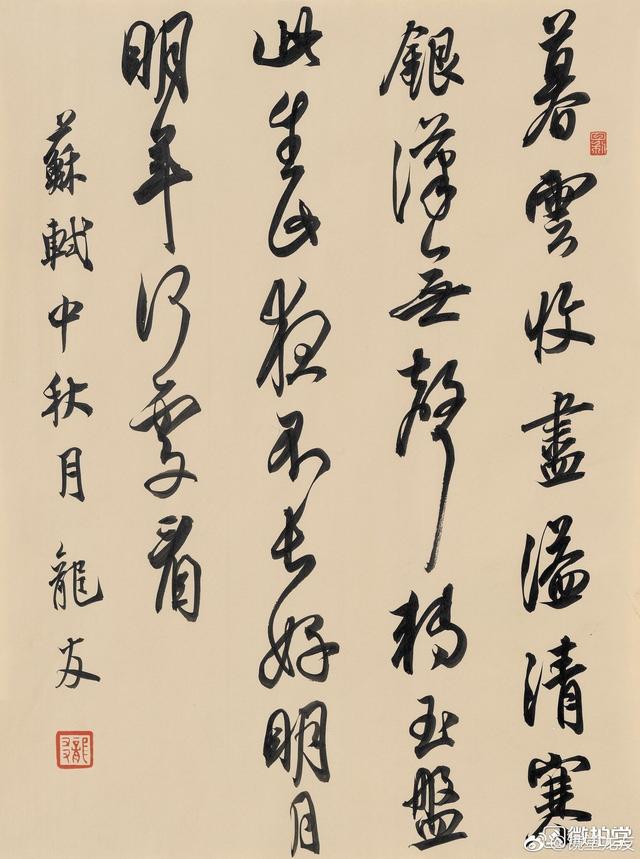 暮雲收盡溢清寒
銀漢無聲轉玉盤
此生此夜不長好明月
明年何處看
蘇軾中秋月 龍友
微拍堂